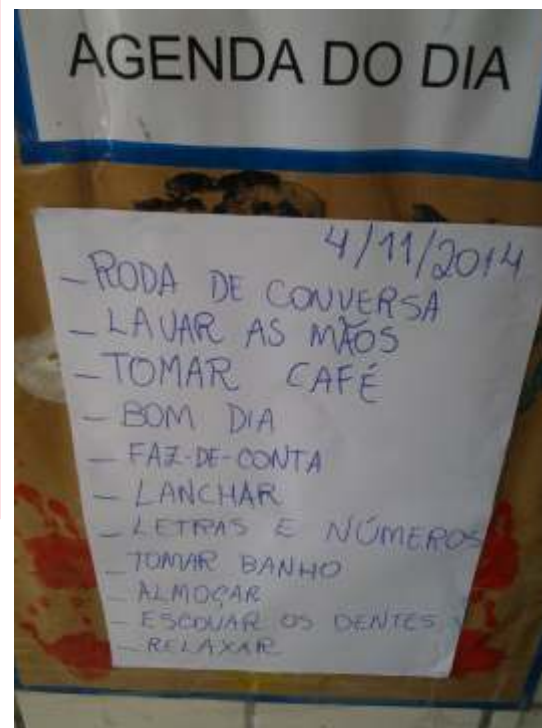 AGENDA DO DIA
4/11/2014
- RODA DE CONVERSA
- LAVAR AS MÃOS
- TOMAR CAFÉ
- BOM DIA
- FAZ-DE-CONTA
- LANCHAR
- LETRAS E NÚMEROS
- TOMAR BANHO
- ALMOÇAR
- ESCOVAR OS DENTES
- RELAXAR